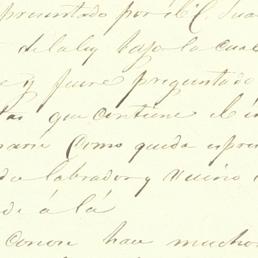 presentado por el C. Jua
de la ley bajo la cual
y fuere preguntado
las que contiene el in
Como queda espre
labrador y vecino
de á la
conoce hace muchos